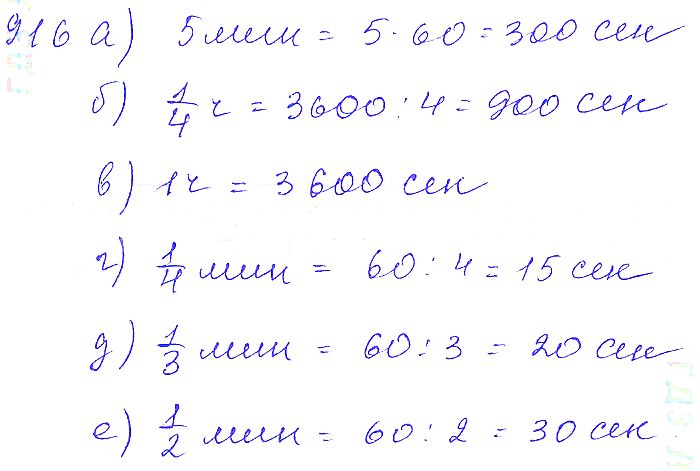 916 а) 5 мин = 5·60 = 300 сек
б) 1/4 ч = 3600 : 4 = 900 сек
в) 1 ч = 3600 сек
г) 1/4 мин = 60 : 4 = 15 сек
д) 1/3 мин = 60 : 3 = 20 сек
е) 1/2 мин = 60 : 2 = 30 сек